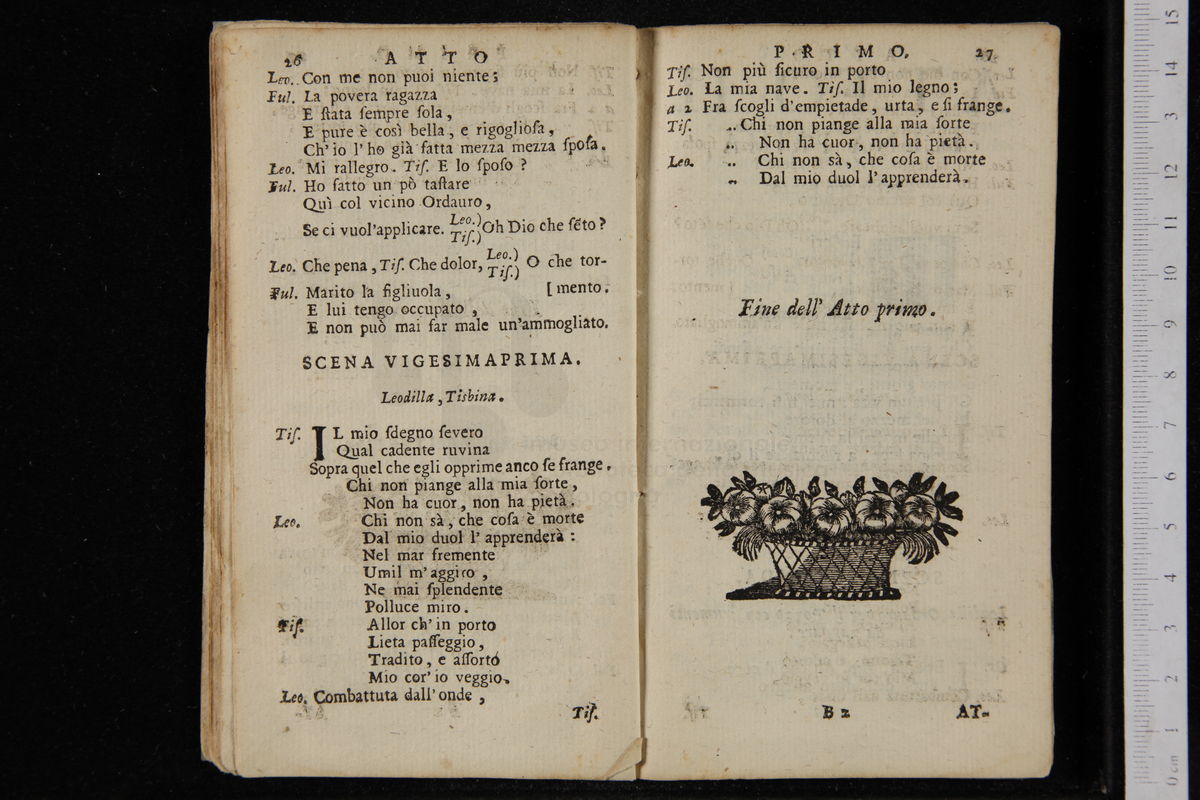 26 ATTO
Leo. Con me non puoi niente;
Ful. La povera ragazza
E ſtata ſempre ſola,
E pure è così bella, e rigoglioſa,
Ch' io l' ho già fatta mezza mezza ſpoſa.
Leo. Mi rallegro. Tiſ. E lo ſpoſo?
Ful. Ho fatto un pò taſtare
Quì col vicino Ordauro,
Se ci vuol'applicare. Leo.) Tiſ.) Oh Dio che ſẽto?
Leo. Che pena, Tiſ. Che dolor, Leo.) Tiſ.) O che tor-
Ful. Marito la figliuola, [mento.
E lui tengo occupato,
E non può mai far male un'ammogliato.
SCENA VIGESIMAPRIMA.
Leodilla, Tisbina.
Tiſ. IL mio ſdegno ſevero
Qual cadente ruvina
Sopra quel che egli opprime anco ſe frange.
Chi non piange alla mia ſorte,
Non ha cuor, non ha pietà.
Leo. Chi non sà, che coſa è morte
Dal mio duol l' apprenderà:
Nel mar fremente
Umil m' aggiro,
Ne mai ſplendente
Polluce miro.
Tiſ. Allor ch' in porto
Lieta paſſeggio,
Tradito, e aſſortó
Mio cor' io veggio.
Leo. Combattuta dall' onde,
Tiſ.
PRIMO. 27
Tiſ. Non più ſicuro in porto
Leo. La mia nave. Tiſ. Il mio legno;
a 2 Fra ſcogli d'empietade, urta, e ſi frange.
Tiſ. „ Chi non piange alla mia ſorte
„ Non ha cuor, non ha pietà.
Leo. „ Chi non sà, che coſa è morte
„ Dal mio duol l'apprenderà.
Fine dell' Atto primo.
B 2 AT-
0 cm 1 2 3 4 5 6 7 8 9 10 11 12 13 14 15